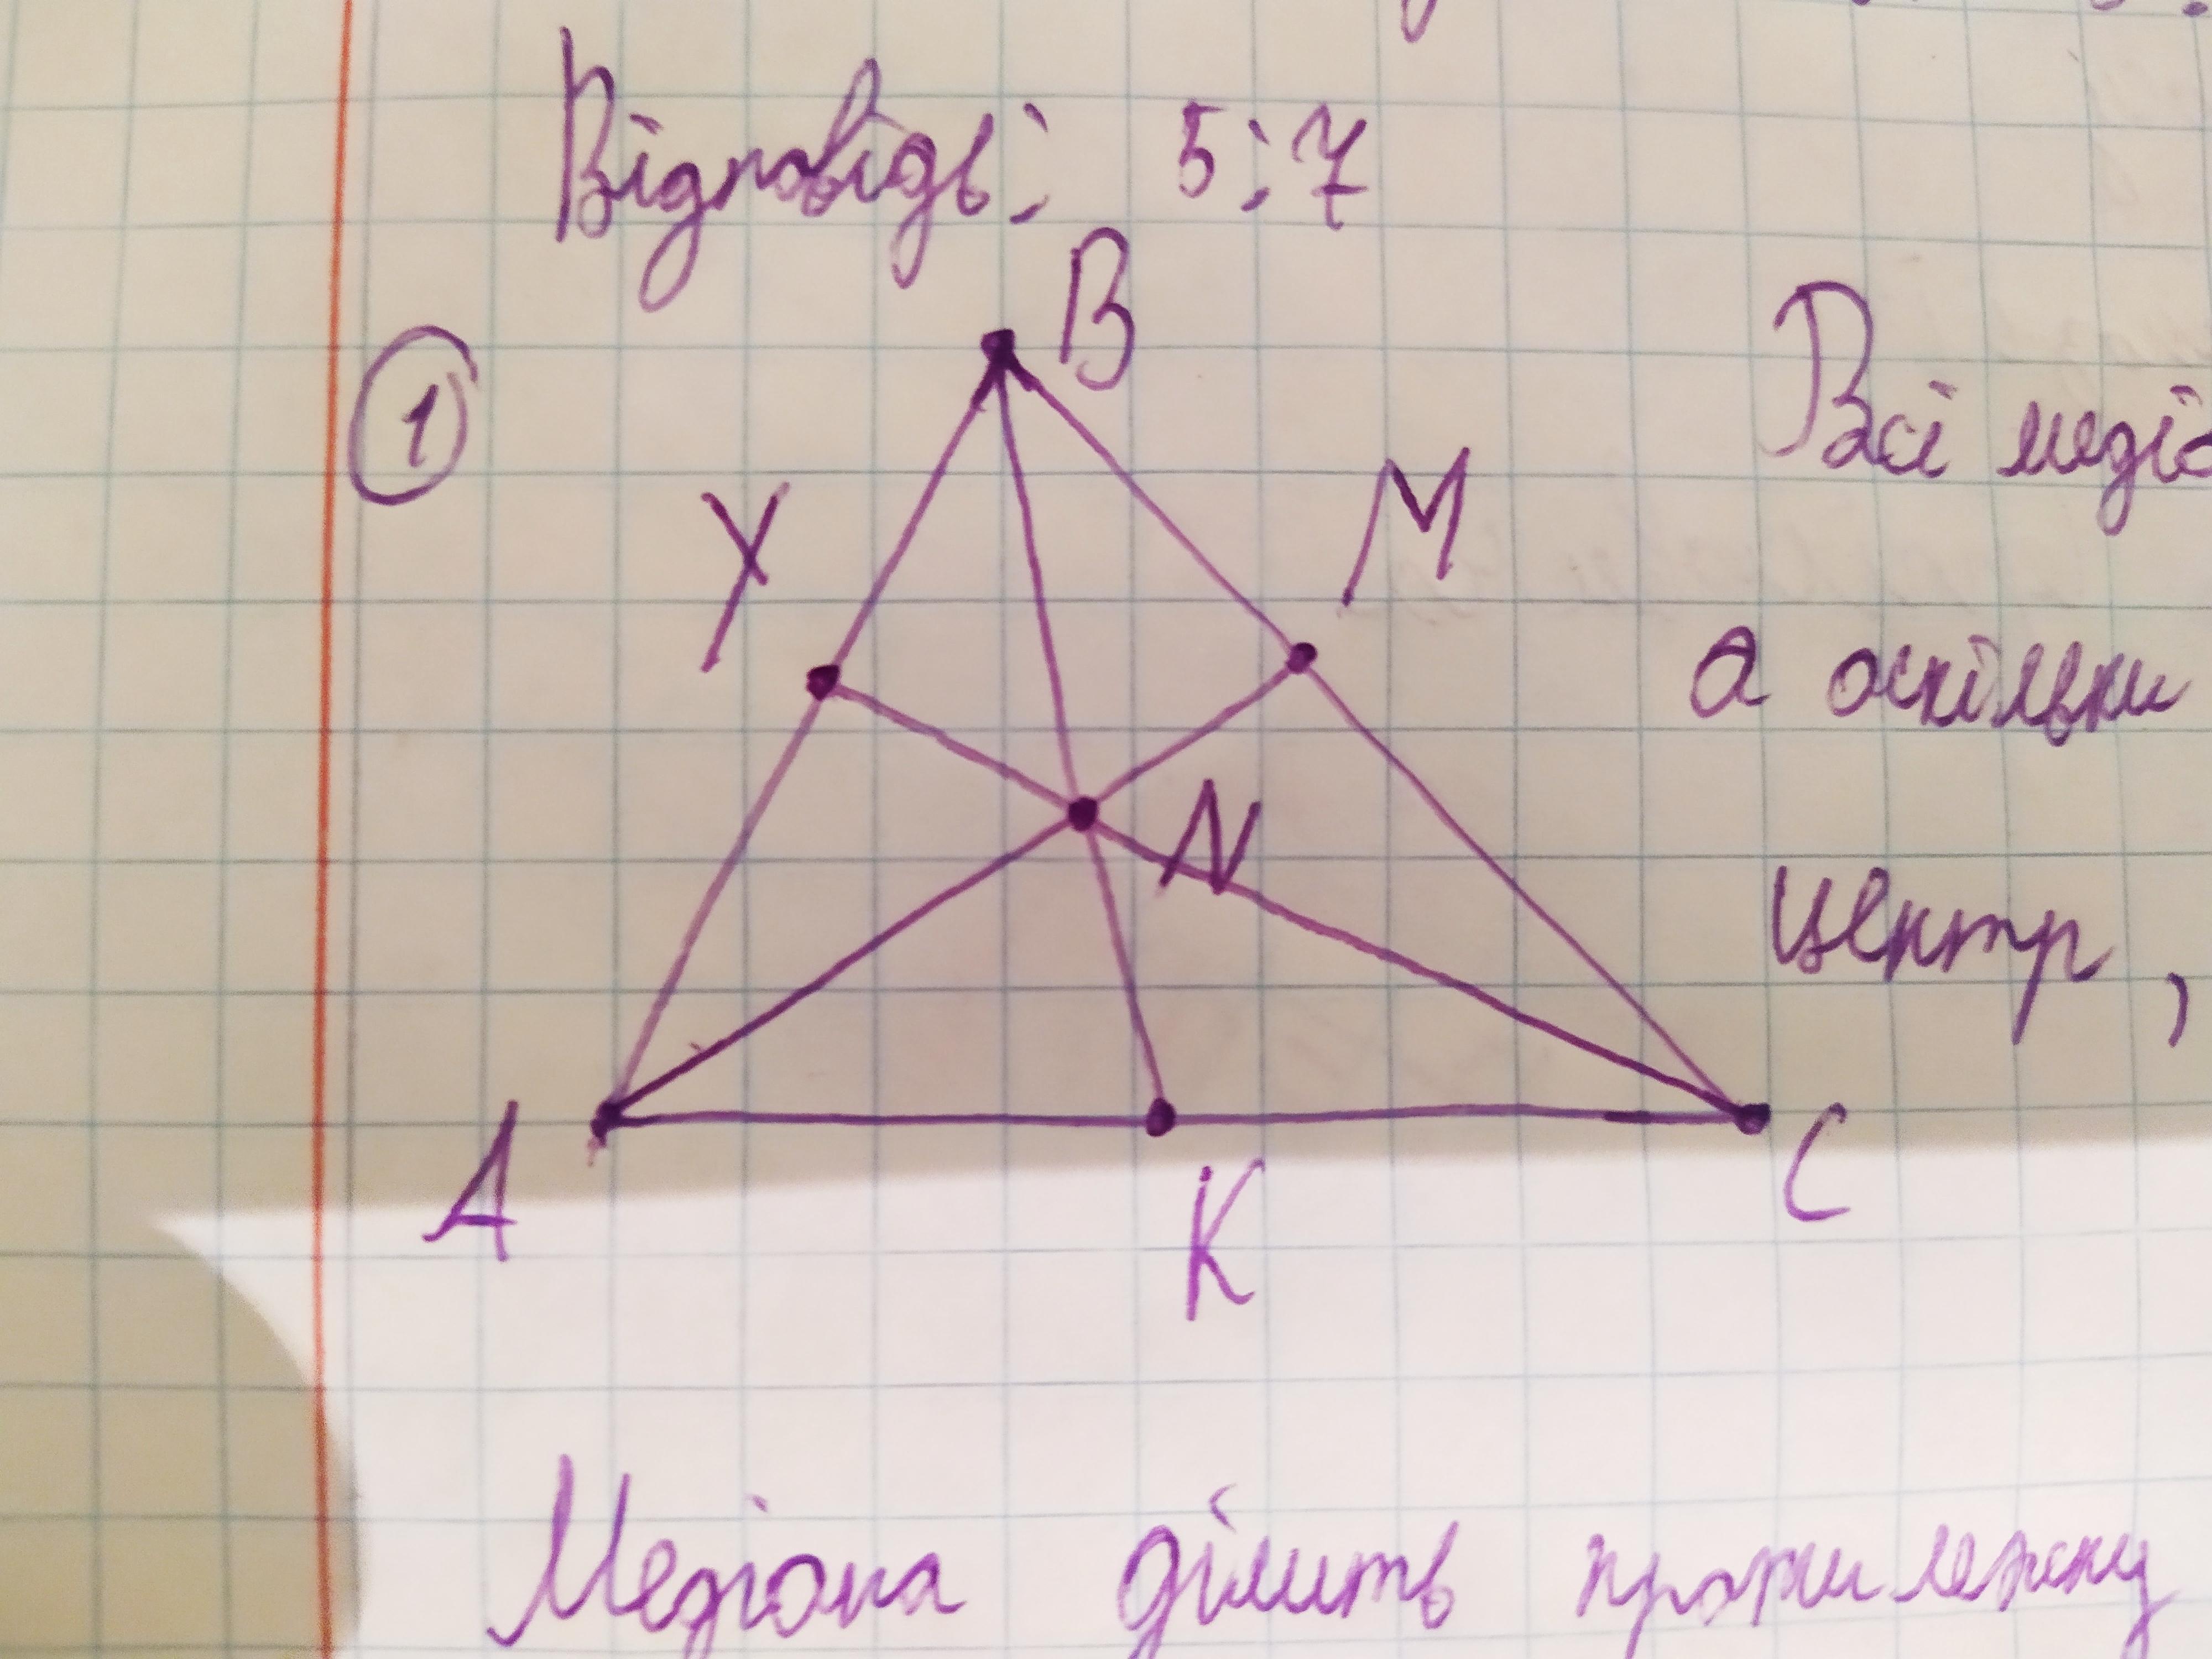 Відповідь: 5:7
1
B
X
M
Всі меді
а оскільки
N
центр,
A
K
C
Медіана ділить протилежну